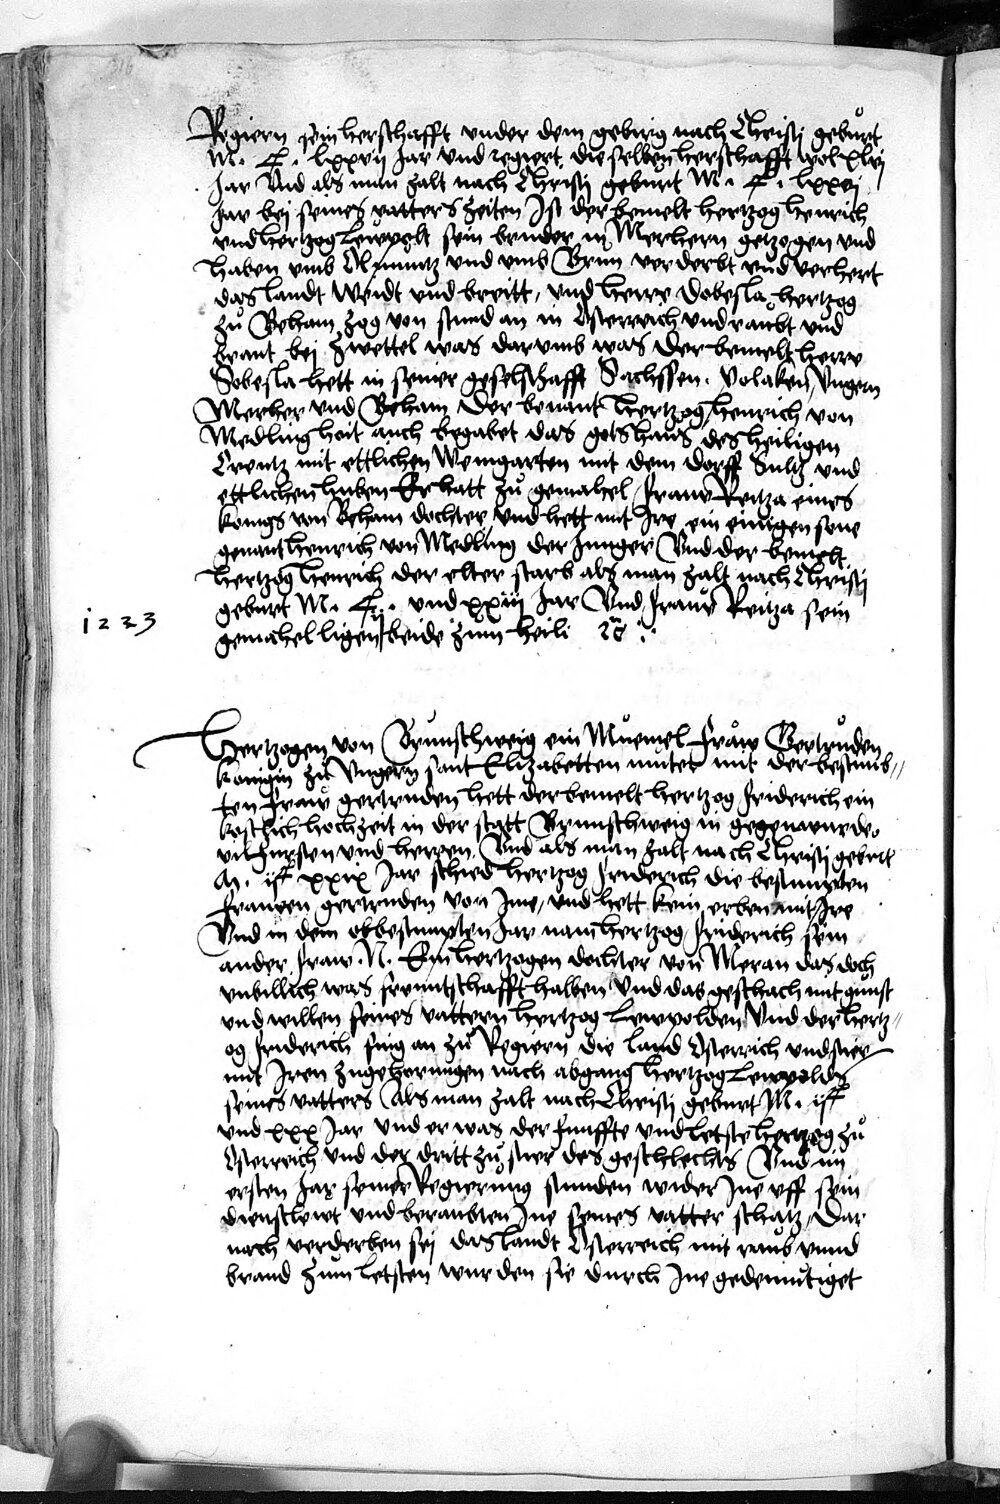 Regiern sein herschafft vnder dem gebirg nach Christj geburt
M. C. lxxvij Jar vnd regiert die selben herschafft wol xlvj
Jar Vnd als man zalt nach Christj geburt M. C. lxxvj
Jar bej seines vatters zeiten Ist der bemelt hertzog henrich
vnd hertzog Lewpolt sein bruder in Merhern getzogen vnd
haben vmb Olmuntz vnd vmb Brun verderbt vnd verhert
das landt weidt vnd breitt, vnd herre Sobesla hertzog
zu Beham zog von stund an in Osterreich vnd raubt vnd
brant bej Zwettel was darumb was Der bemelt herre
Sobesla hett in seiner geselschafft Sachssen. Polaken, Vngern
Merher vnd Beham Der benant hertzog henrich von
Medling heit auch begabet das gotshaus des heiligen
Creutz mit ettlichen Weingarten mit dem dorff Sultz vnd
ettlichen huben Er hatt zu gemahel Frauw Reitza eines
konigs von Beham dochter vnd hett mit Ire ein einigen sone
genant henrich von Medling der Junger Vnd der bemelt
hertzog henrich der elter starb als man zalt nach Christj
geburt M. CC. vnd xxiij Jar Vnd Frauw Reitza sein
1223
gemahel ligen beide zum heili
Hertzogen von Brunschweig ein Muemel fraw Gertruden
konigin zu Vngern sant Elizabetten muter mit der bestimb-
ten fraw gertruden hett der bemelt hertzog friderich ein
kostlich hochzeit in der statt Brunschweig in gegenwurde
vil fursten vnd herren. Vnd als man zalt nach Christj geburt
M. ijC xxix Jar schied hertzog friderich die bestimpten
frauwen gertruden von Ime, vnd hett kein erben mit Ire
Vnd in dem obbestimpten Jar nam hertzog friderich sein
ander fraw .N. Ein hertzogen dochter von Meran das doch
vnbillich was freuntschafft halben Vnd das geschach mit gunst
vnd willen seines vattern hertzog Lewpolden Vnd der hertz-
og friderich fing an zu Regiern die land Osterrich vnd stier
mit Iren zugeherungen nach abgang hertzog Lewpolds
seines vatters Als man zalt nach Christj geburt M. ijC
vnd xxx Jar vnd er was der funffte vnd letste hertzog zu
Osterreich vnd der dritt zu stier des geschlechts Vnd im
ersten Jar seiner Regierung stunden wider Ine vff sein
dienstlewt vnd beraubten Ine seines vatter schatz, Dar
nach verderben sej das landt Osterreich mit raub vnnd
brand zum letsten wurden sie durch Ine gedemutiget